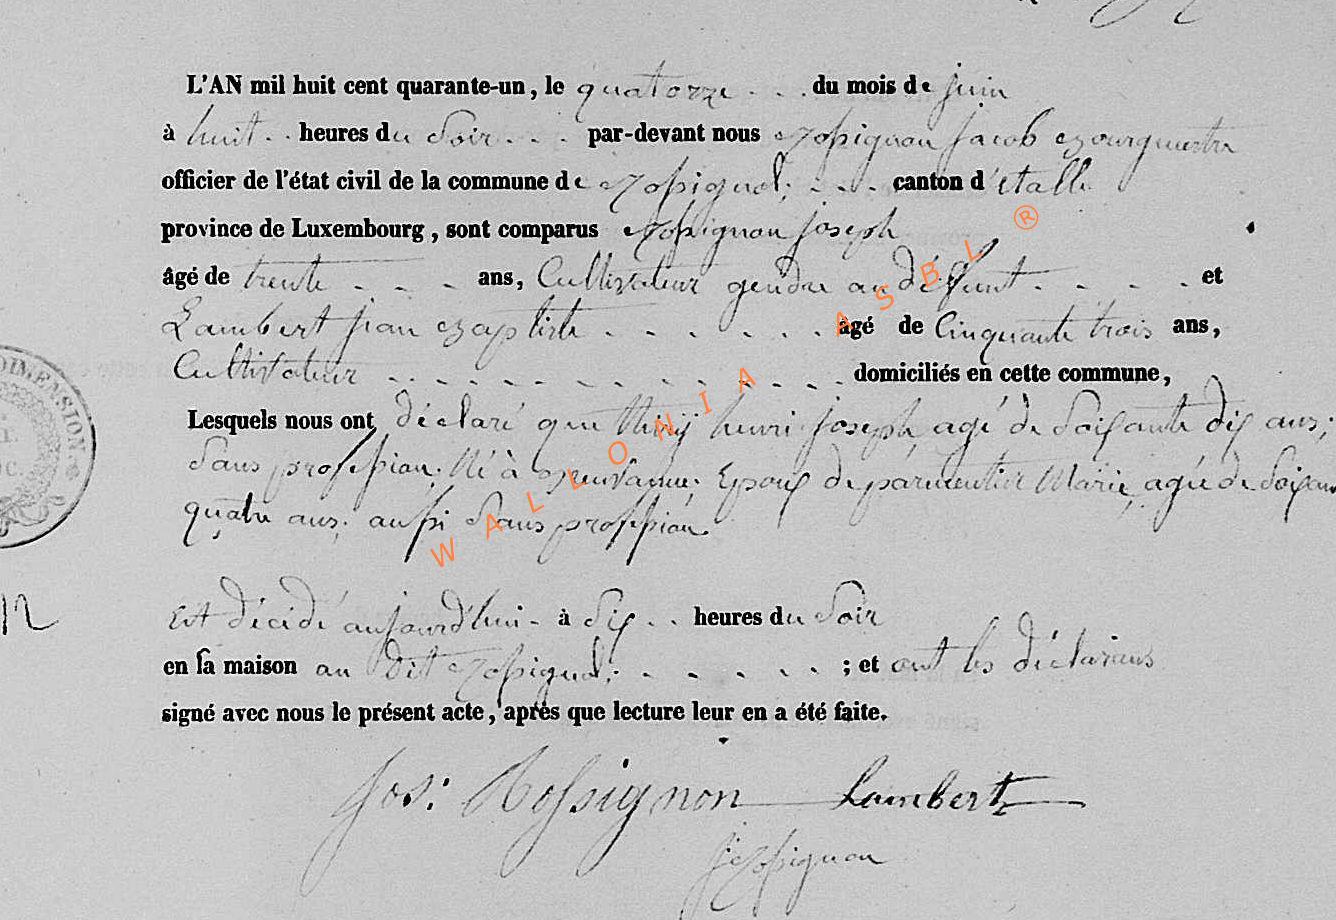 L'AN mil huit cent quarante-un, le quatorze . . . du mois de juin
à huit . . heures du Soir . . . par-devant nous Rossignon Jacob Bourgmestre
officier de l'état civil de la commune de Rossignol; . . . canton d'étalle
province de Luxembourg, sont comparus Rossignon joseph
âgé de trente . . . ans, Cultivateur gendre au défunt . . . . . et
Lambert jean Baptiste . . . . . . âgé de Cinquante trois ans,
Cultivateur . . . . . . . . . . . . . domiciliés en cette commune,
Lesquels nous ont déclaré que thiry henri joseph, agé de Soixante dix ans;
Sans profession; Né à Epoux de parmentier Marie, agée de
quatre ans; aussi Sans profession.
12
Est décidé aujourd'hui - à Six . . heures du Soir
en sa maison au dit Rossignol; . . . . . ; et ont les déclarans
signé avec nous le présent acte, après que lecture leur en a été faite.
Jos: Rossignon Lambert
J Rossignon
DIMENSION
WALLONIA ASBL ®